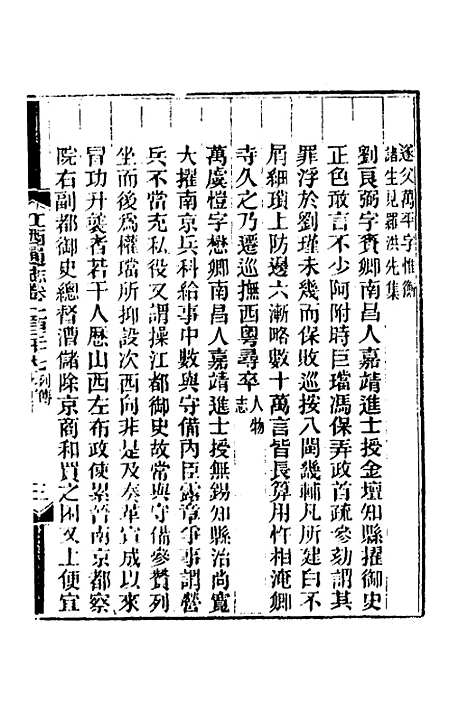 遂父萬平字惟衡
諸生見羅洪先集
劉良弼字賚卿南昌人嘉靖進士授金壇知縣擢御史
正色敢言不少阿附時巨璫馮保弄政首疏參劾謂其
罪浮於劉瑾未幾而保敗巡按八閩畿輔凡所建白不
屑細瑣上防邊六漸略數十萬言皆長算用忤相淹卿
寺久之乃遷巡撫西粵尋卒人物
志
萬虞愷字懋卿南昌人嘉靖進士授無錫知縣治尚寬
大擢南京兵科給事中數與守備內臣露章爭事謂營
兵不當充私役又謂操江都御史故常與守備參贊列
坐而後為權璫所抑設次西向非是及奏革宣成以來
冒功升襲者若干人歷山西左布政使累晉南京都察
院右副都御史總督漕儲除京商和買之困又上便宜
江西通志卷一百三十七 列傳